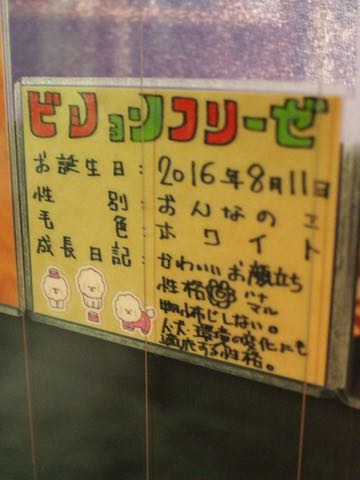 ビションフリーゼ
お誕生日: 2016年8月11日
性別: おんなのこ
毛色: ホワイト
成長日記: かわいいお顔立ち
性格 ハナマル
物怖じしない。
人、犬、環境の変化にも
適応する性格。